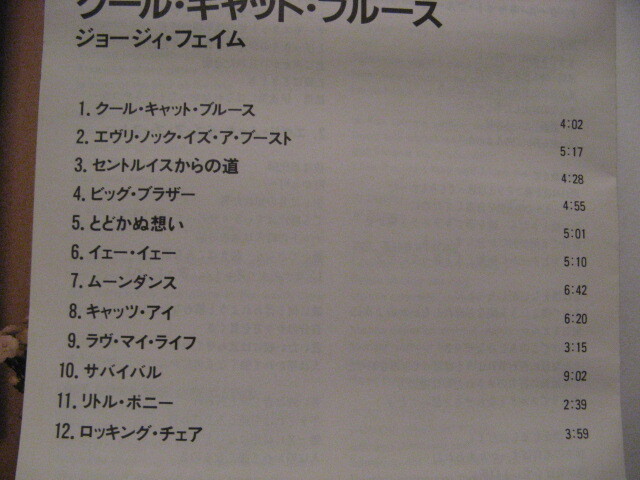 クール・キャット・ブルース
ジョージィ・フェイム
1. クール・キャット・ブルース 4:02
2. エヴリ・ノック・イズ・ア・ブースト 5:17
3. セントルイスからの道 4:28
4. ビッグ・ブラザー 4:55
5. とどかぬ想い 5:01
6. イェー・イェー 5:10
7. ムーンダンス 6:42
8. キャッツ・アイ 6:20
9. ラヴ・マイ・ライフ 3:15
10. サバイバル 9:02
11. リトル・ポニー 2:39
12. ロッキング・チェア 3:59